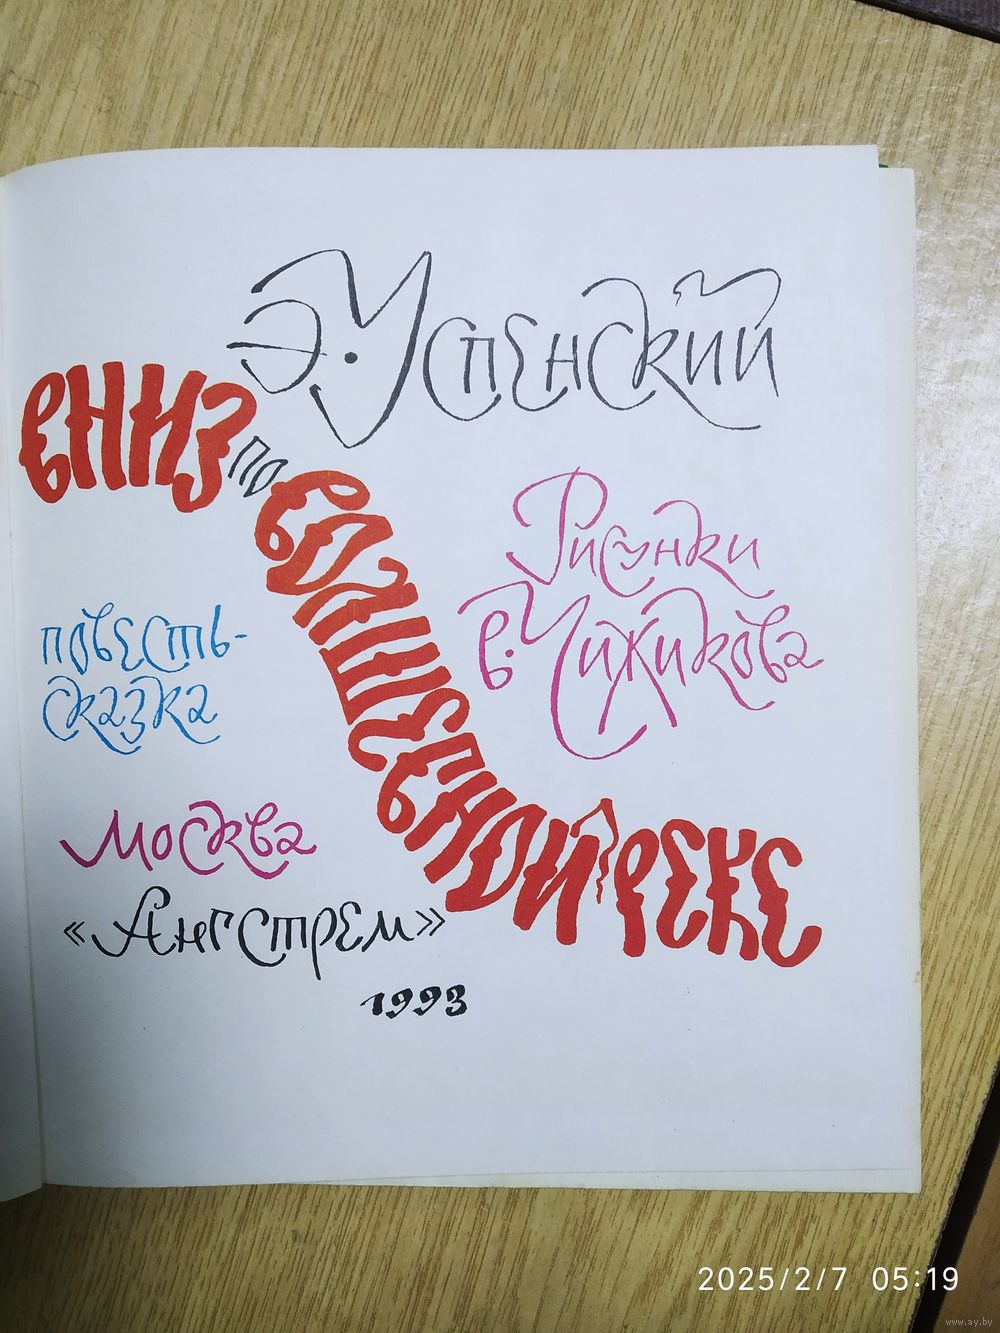 Э. Успенский
Вниз по волшебной реке
Рисунки
В. Чижикова
повесть-
сказка
Москва
«Ангстрем»
1993
2025/2/7 05:19
www.ay.by